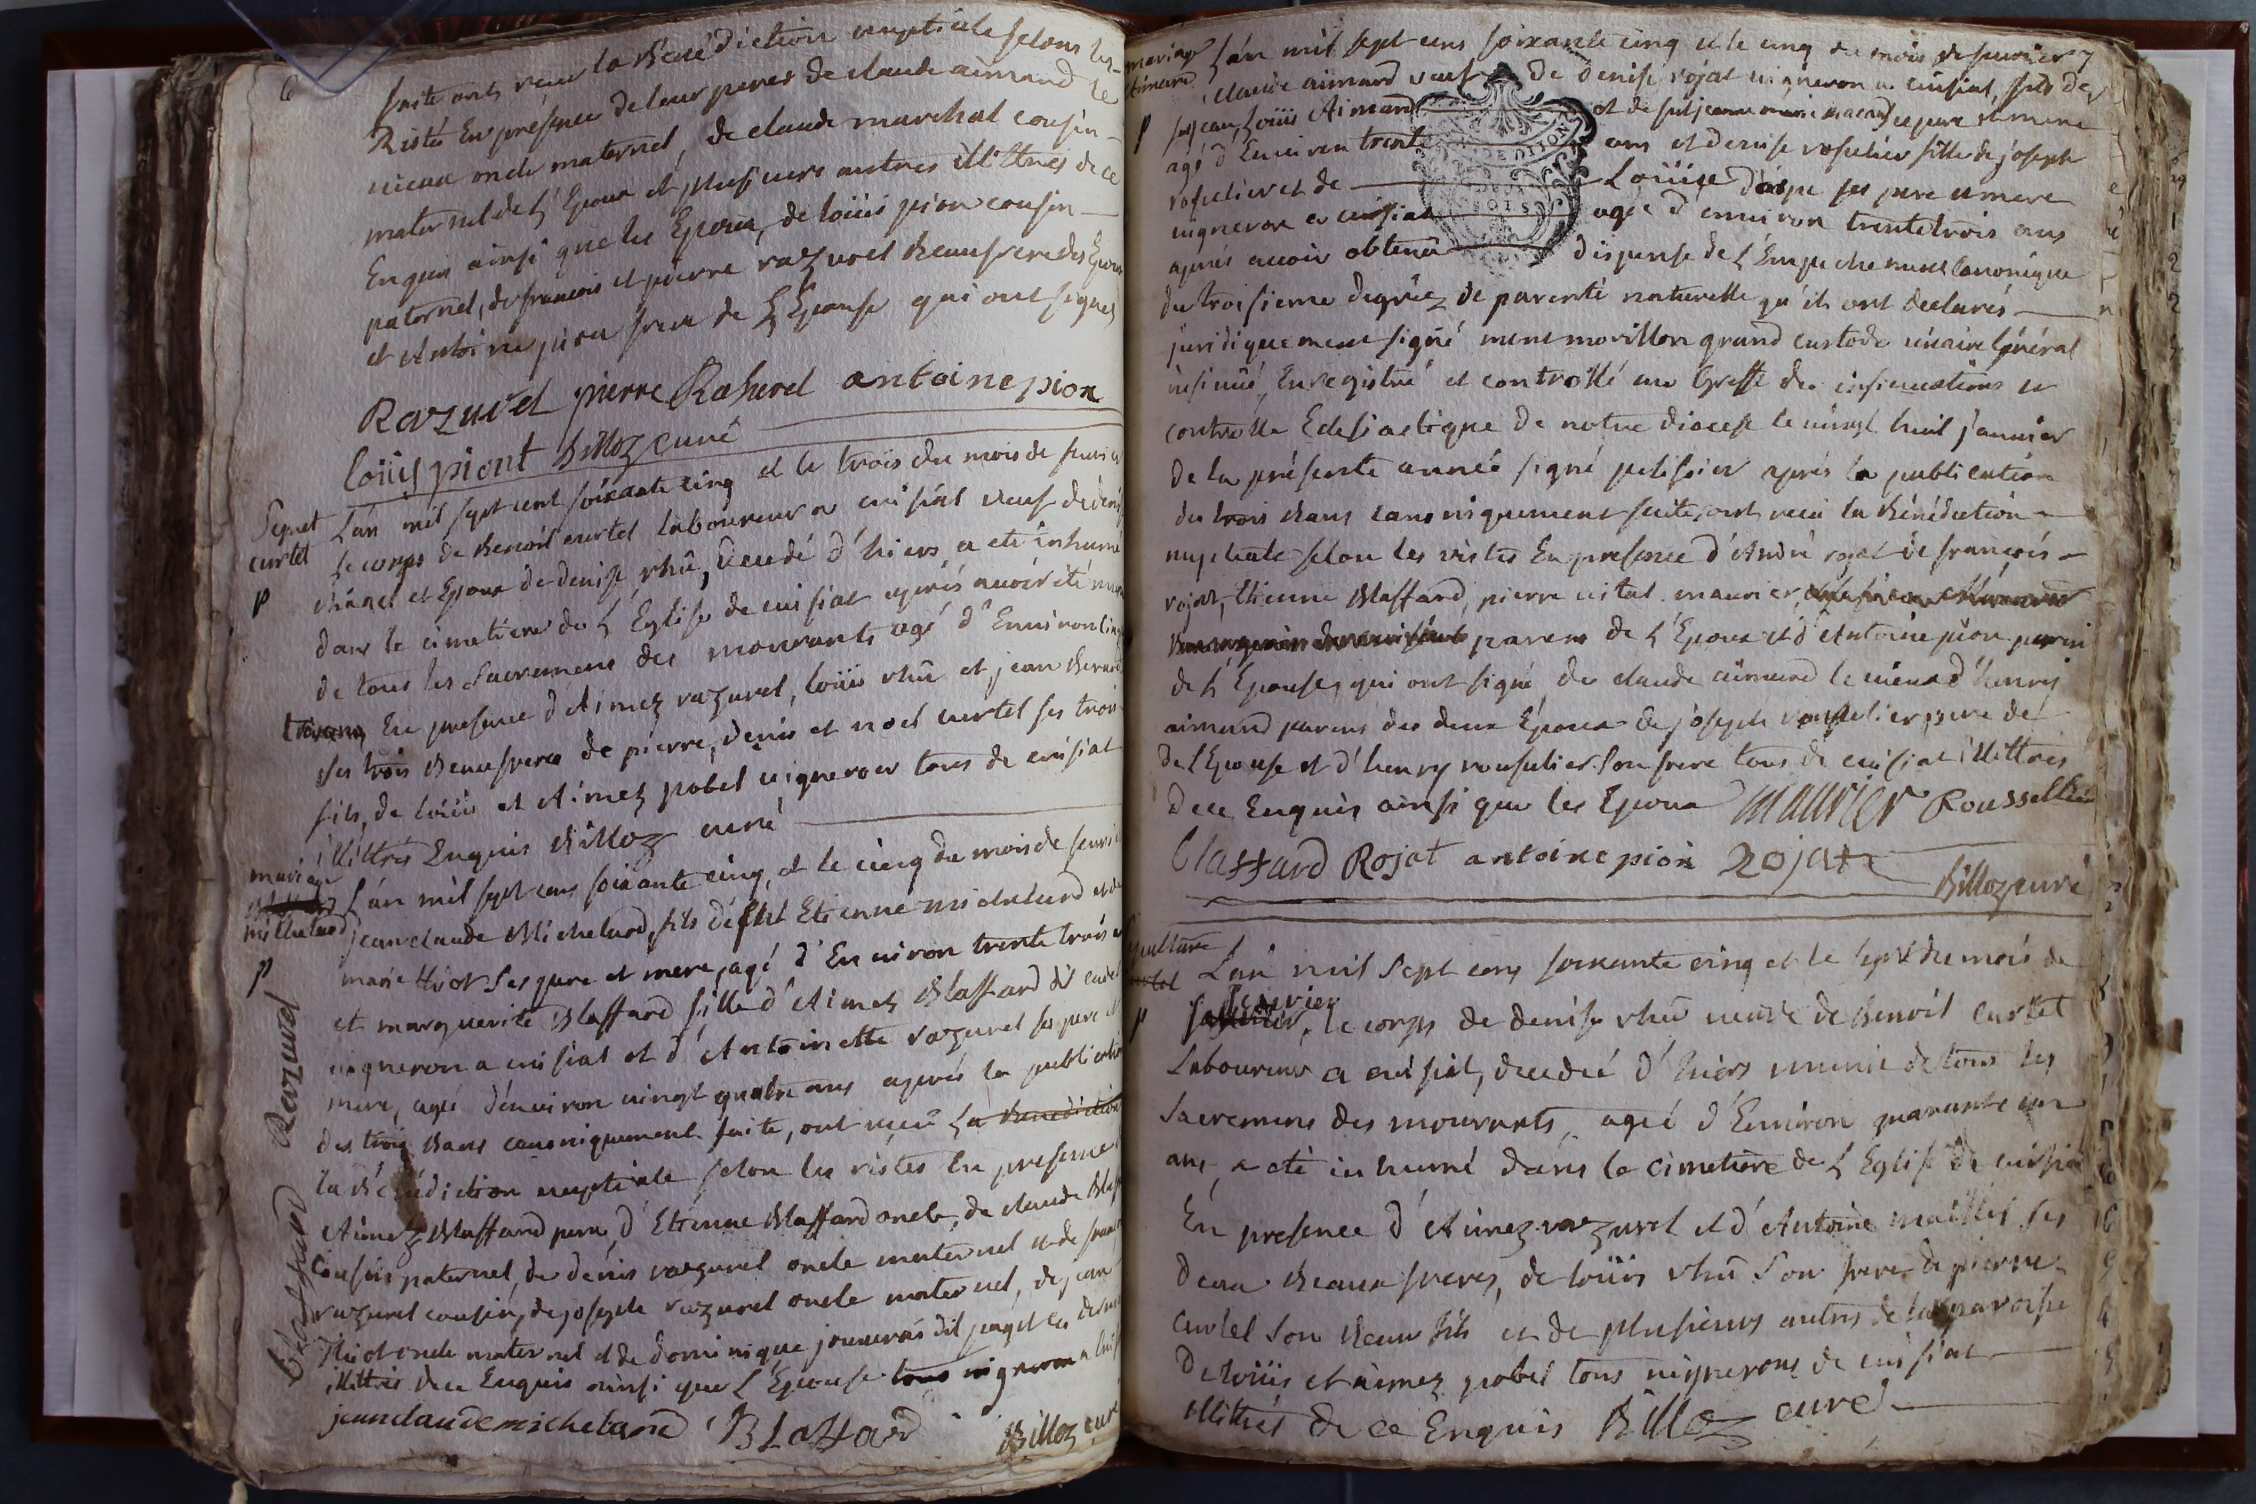 6
faite ont, reçu la Bénédiction nuptiale selons les
Ristes En presence de leur peres de claude aimard le
vieux oncle maternel, de claude marechal cousin
maternel de L'Epoux et plusieurs autres illittrés de ce
Enquis ainsi que les Epoux, de loüis pion cousin
paternel, de françois et pierre razurel Beaufrere des Epoux
et Antoine pion frere de L'Epouse qui ont signés
Razurel pierre Rasurel antoine pion
loüis piont Billoz curé
Sepult
curtel
p
L'an mil sept cent soixante cinq et le trois du mois de feurier
le corps de Benoit curtel laboureur a cuisiat veuf de denise
et Epoux de denise rhû, decedé d'hiers a eté inhumé
dans le cimetiere de L'Eglise de cuisiat aprés avoir été muni
de tous les Sacremens des mourants agé d'Environ cinq
En presence d'Aimez razurel, loüis rhû et jean
ses trois Beaufreres de pierre, denis et noel curtel ses trois
fils, de loüis et Aimez pobel vigneron tous de cuisiat
illittrés Enquis Billoz curé
mariage
michelard
p
L'an mil sept cens soixante cinq, et le cinq du mois de feurier
jean claude Michelard, fils de fut Etienne michelard et de
marie Huot Ses pere et mere, agé d'Environ trente trois
et marguerite Blaffard fille d'Aimez Blaffard dit cadet
vigneron a cuisiat et d'Antoinette razurel ses pere et
mere, agée d'environ vingt quatre ans aprés la publication
des trois Bans canoniquement faite, ont reçu La Benediction
la Bénédiction nuptiale selon les ristes En presence
Aimez Blaffard pere, d'Etienne Blaffard oncle, de claude
cousin paternel, de denis razurel oncle maternel et de
razurel cousin, de joseph razurel oncle maternel, de jean
Huot oncle maternel et de dominique dit
illittrés de ce Enquis ainsi que L'Epouse tous vigneron a
jean claude michelard Blaffard Billoz curé
Blaffard Razurel
mariage
aimard
p
L'an mil sept cens soixante cinq et le cinq du mois de feurier 7
claude aimard veuf de denise rojat vigneron a cuisiat, fils de
fut jean Loüis Aimard et de fut jeanne marie ses pere et mere
agé d'Environ trente ans et denise rosselier fille de joseph
rosselier et de Loüise ses pere et mere
vigneron a cuisiat agée d'environ trente trois ans
aprés avoir obtenû dispense de L'Empechement Canonique
du troisieme degréz de parenté naturelle qu'ils ont declarés
juridiquement signé mene morillon grand custode vicaire Général
insinüé, Enregistré et controllé au Greffe des insinuations et
controlle Eclesiastique de notre diocese le vingt huit janvier
de la présente année signé pelissier aprés la publication
des trois Bans canoniquement faite, ont reçu la Bénédiction
nuptiale selon les ristes En presence d'André rojat de françois
rojat, Etienne Blaffard, pierre vital maurier
parens de L'Epoux et d'Antoine pion parein
de L'Epouse, qui ont signé, de claude aimard le vieux d'henry
aimard parens des deux Epoux de joseph rousselier, pere de
de L'Epouse et d'henry rousselier Son frere tous de cuisiat illittrés
de ce Enquis ainsi que les Epoux maurier Roussellier
Claffard Rojat antoine pion Rojat
Billoz curé
Sepulture
curtel
p
L'an mil Sept cens soixante cinq et le sept du mois de
feurier, le corps de denise rhû veuve de Benoit curtel
Laboureur a cuisiat, decedée d'hiers munie de tous les
Sacremens des mourants, agée d'Environ quarante un
ans, a eté inhumé dans le cimetière de L'Eglise de cuisiat
En presence d'Aimez razurel et d'Antoine maillet ses
deux Beaux freres, de loüis rhû Son frere, de pierre
curtel Son Beau fils et de plusieurs autres de la paroisse
de loüis et aimez pobel tous vignerons de cuisiat
illittrés de ce Enquis Billoz curé